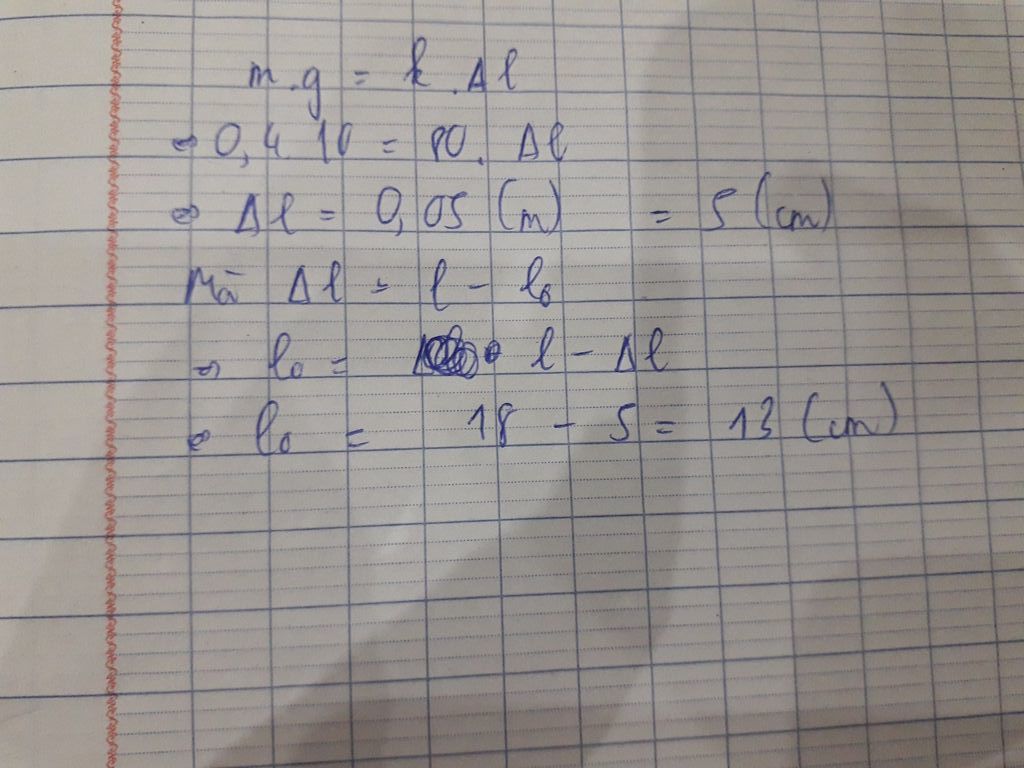 m.g = k.Δl
⇔ 0,4 10 = 80. Δl
⇔ Δl = 0,05 (m) = 5 (cm)
Mà Δl = l - l₀
⇒ l₀ = l - Δl
⇔ l₀ = 18 - 5 = 13 (cm)